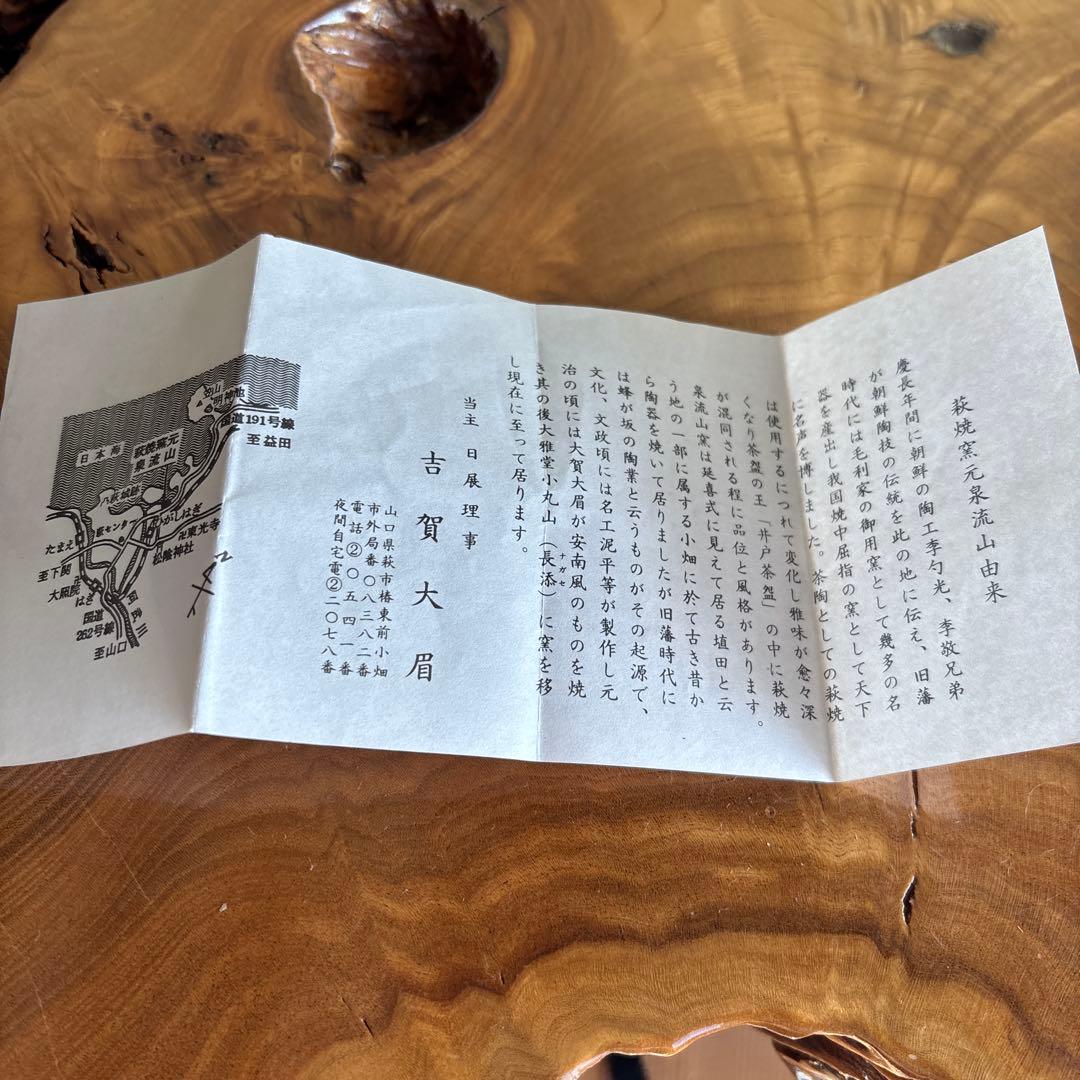 萩焼窯元泉流山由来
慶長年間に朝鮮の陶工李勺光、李敬兄弟
が朝鮮陶技の伝統を此の地に伝え、旧藩
時代には毛利家の御用窯として幾多の名
器を産出し我国焼中屈指の窯として天下
に名声を博しました。茶陶としての萩焼
は使用するにつれて変化し雅味が愈々深
くなり茶盌の王「井戸茶盌」の中に萩焼
が混同される程に品位と風格があります。
泉流山窯は延喜式に見えて居る埴田と云
う地の一部に属する小畑に於て古き昔か
ら陶器を焼いて居りましたが旧藩時代に
は蜂が坂の陶業と云うものがその起源で、
文化、文政頃には名工泥平等が製作し元
治の頃には大賀大眉が安南風のものを焼
き其の後大雅堂小丸山（長添）に窯を移
ナガセ
し現在に至って居ります。
当主 日展理事
吉賀大眉
山口県萩市椿東前小畑
市外局番〇八三八二番
電話②〇五四一番
夜間自宅電②二〇七八番
明神池
国道191号線
至益田
日本海
萩焼窯元
泉流山
萩城跡
萩センター
ひがしはぎ
卍東光寺
松陰神社
たまえ
至下関
大照院
はぎ
国道
262号線
阿武川
至山口